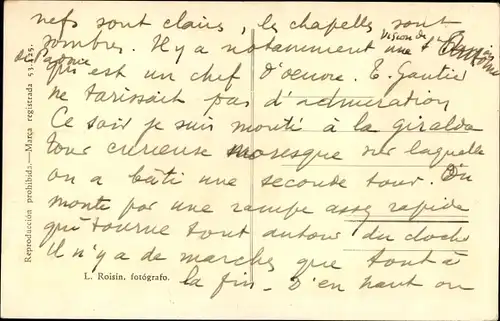 nefs sont clairs, les chapelles sont
sombres. Il y a notamment une Vision de St Antoine
de Padoue
qui est un chef d'oeuvre. T. Gautier
ne tarissait pas d'admiration
Ce soir je suis monté à la Giralda
tour curieuse moresque sur laquelle
on a bâti une seconde tour. On
monte par une rampe assez rapide
qui tourne tout autour du cloche
Il n'y a de marches que tout à
la fin - D'en haut on
L. Roisin, fotógrafo.
Reproducción prohibida.—Marca registrada 53.125.